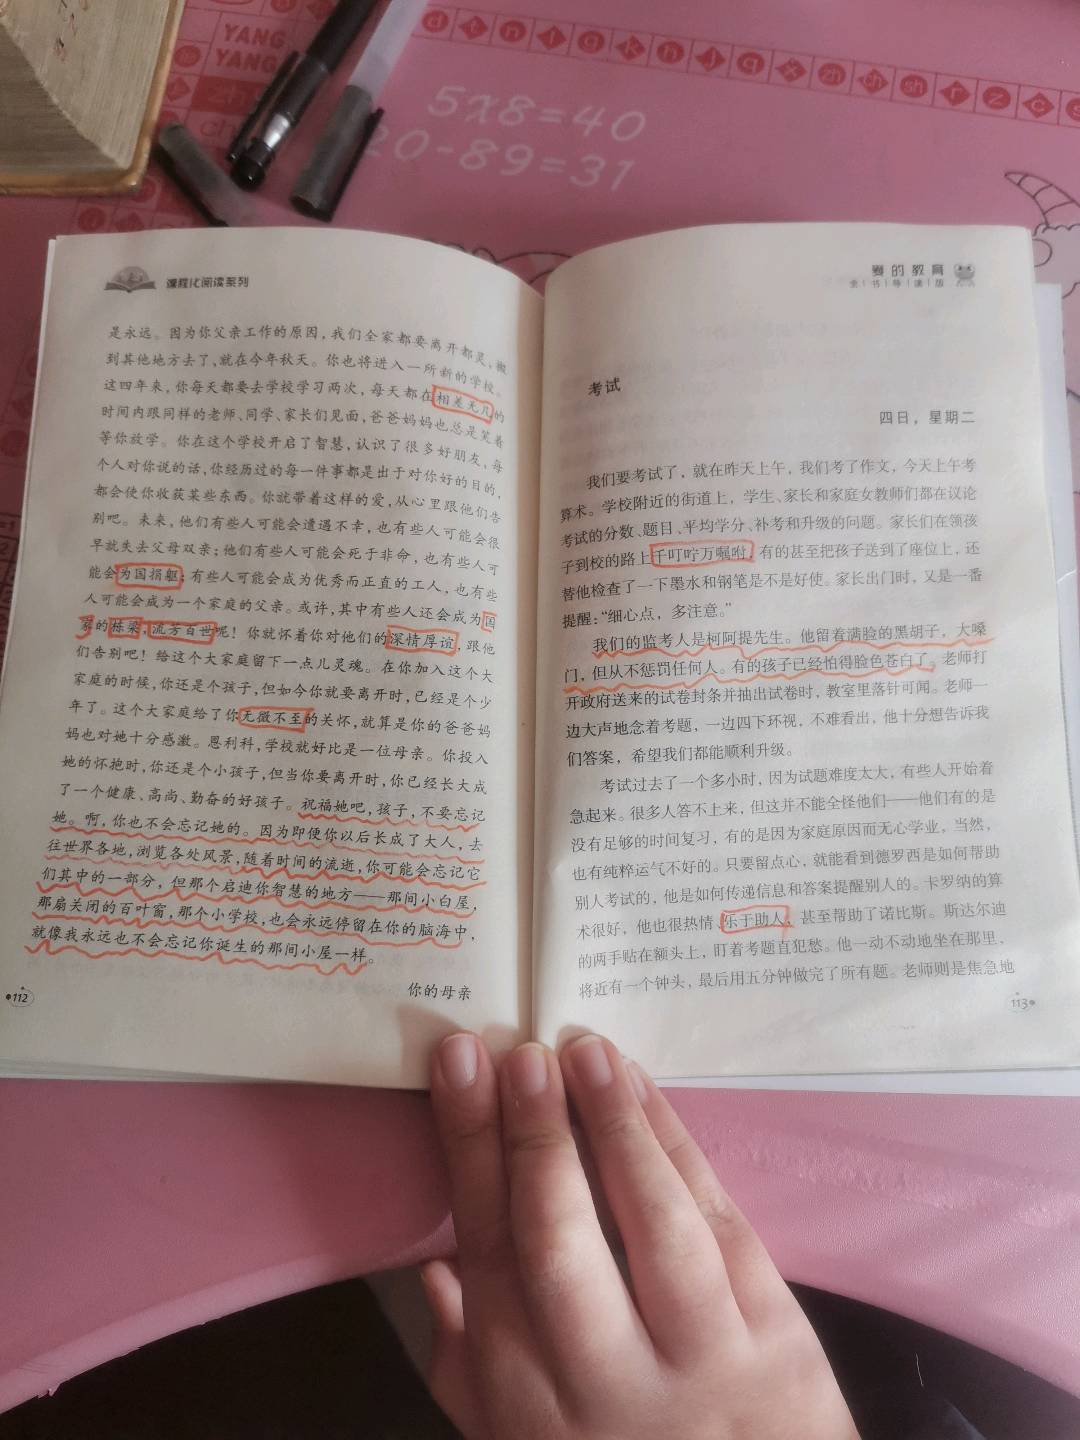 YANG
YANG
zh
ch
d t n l g k h j q x zh ch sh r z c s
5×8=40
20-89=31
课程化阅读系列
是永远。因为你父亲工作的原因,我们全家都要离开都灵,搬
到其他地方去了,就在今年秋天。你也将进入一所新的学校。
这四年来,你每天都要去学校学习两次,每天都在相差无几的
时间内跟同样的老师、同学、家长们见面,爸爸妈妈也总是笑着
等你放学。你在这个学校开启了智慧,认识了很多好朋友,每
个人对你说的话,你经历过的每一件事都是出于对你好的目的,
都会使你收获某些东西。你就带着这样的爱,从心里跟他们告
别吧。未来,他们有些人可能会遭遇不幸,也有些人可能会很
早就失去父母双亲;他们有些人可能会死于非命,也有些人可
能会为国捐躯;有些人可能会成为优秀而正直的工人,也有些
人可能会成为一个家庭的父亲。或许,其中有些人还会成为国
家的栋梁,流芳百世呢!你就怀着你对他们的深情厚谊,跟他
们告别吧!给这个大家庭留下一点儿灵魂。在你加入这个大
家庭的时候,你还是个孩子,但如今你就要离开时,已经是个少
年了。这个大家庭给了你无微不至的关怀,就算是你的爸爸妈
妈也对她十分感激。恩利科,学校就好比是一位母亲。你投入
她的怀抱时,你还是个小孩子,但当你要离开时,你已经长大成
了一个健康、高尚、勤奋的好孩子。祝福她吧,孩子,不要忘记
她。啊,你也不会忘记她的。因为即便你以后长成了大人,去
往世界各地,浏览各处风景,随着时间的流逝,你可能会忘记它
们其中的一部分,但那个启迪你智慧的地方——那间小白屋,
那扇关闭的百叶窗,那个小学校,也会永远停留在你的脑海中,
就像我永远也不会忘记你诞生的那间小屋一样。
你的母亲
112
爱的教育
全书导读版
考试
四日,星期二
我们要考试了,就在昨天上午,我们考了作文,今天上午考
算术。学校附近的街道上,学生、家长和家庭女教师们都在议论
考试的分数、题目、平均学分、补考和升级的问题。家长们在领孩
子到校的路上千叮咛万嘱咐,有的甚至把孩子送到了座位上,还
替他检查了一下墨水和钢笔是不是好使。家长出门时,又是一番
提醒:“细心点,多注意。”
我们的监考人是柯阿提先生。他留着满脸的黑胡子,大嗓
门,但从不惩罚任何人。有的孩子已经怕得脸色苍白了。老师打
开政府送来的试卷封条并抽出试卷时,教室里落针可闻。老师一
边大声地念着考题,一边四下环视,不难看出,他十分想告诉我
们答案,希望我们都能顺利升级。
考试过去了一个多小时,因为试题难度太大,有些人开始着
急起来。很多人答不上来,但这并不能全怪他们——他们有的是
没有足够的时间复习,有的是因为家庭原因而无心学业,当然,
也有纯粹运气不好的。只要留点心,就能看到德罗西是如何帮助
别人考试的,他是如何传递信息和答案提醒别人的。卡罗纳的算
术很好,他也很热情,乐于助人,甚至帮助了诺比斯。斯达尔迪
的两手贴在额头上,盯着考题直犯愁。他一动不动地坐在那里,
将近有一个钟头,最后用五分钟做完了所有题。老师则是焦急地
113